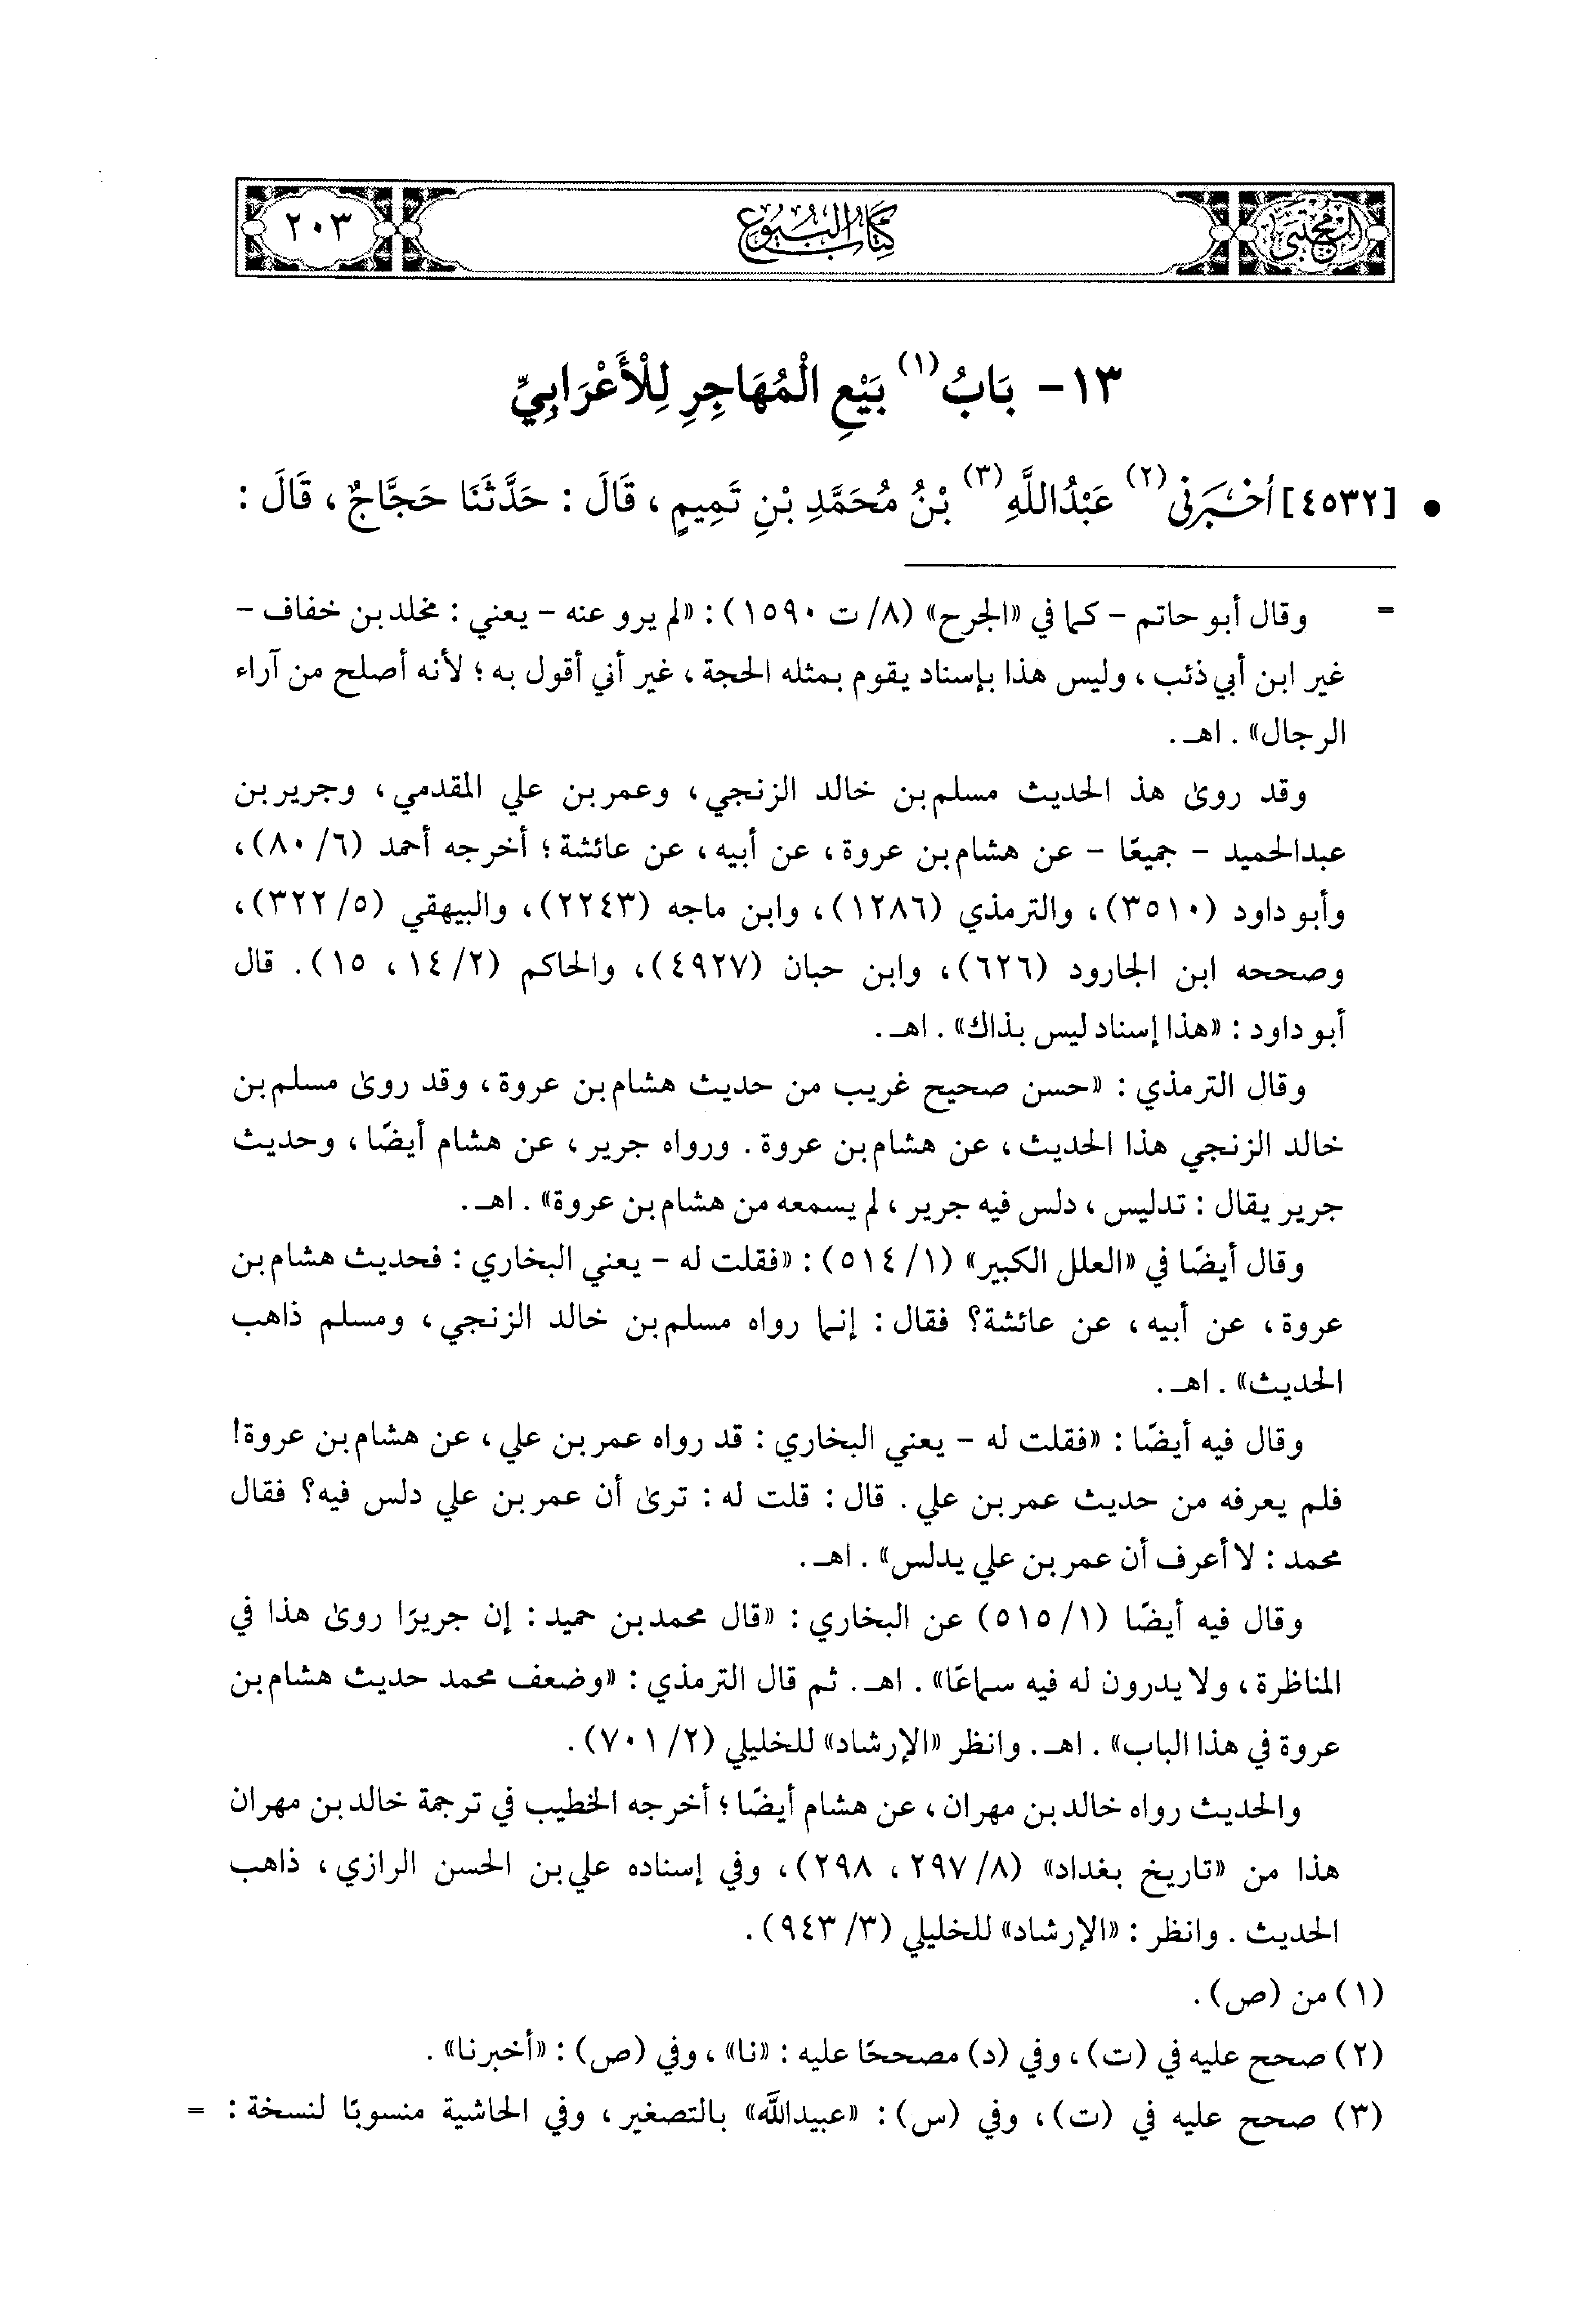 المجتبى
كتاب البيوع
٢٠٣
١٣- بَابُ (١) بَيْعِ الْمُهَاجِرِ لِلْأَعْرَابِيِّ
• [٤٥٣٢] أَخْبَرَنِي (٢) عَبْدُاللَّهِ (٣) بْنُ مُحَمَّدِ بْنِ تَمِيمٍ، قَالَ: حَدَّثَنَا حَجَّاجٌ، قَالَ:
= وقال أبو حاتم - كما في «الجرح» (٨/ ت ١٥٩٠): «لم يرو عنه - يعني: مخلد بن خفاف -
غير ابن أبي ذئب، وليس هذا بإسناد يقوم بمثله الحجة، غير أني أقول به؛ لأنه أصلح من آراء
الرجال». اهـ.
وقد روى هذ الحديث مسلم بن خالد الزنجي، وعمر بن علي المقدمي، وجرير بن
عبدالحميد - جميعًا - عن هشام بن عروة، عن أبيه، عن عائشة؛ أخرجه أحمد (٦/ ٨٠)،
وأبو داود (٣٥١٠)، والترمذي (١٢٨٦)، وابن ماجه (٢٢٤٣)، والبيهقي (٥/ ٣٢٢)،
وصححه ابن الجارود (٦٢٦)، وابن حبان (٤٩٢٧)، والحاكم (٢/ ١٤، ١٥). قال
أبو داود: «هذا إسناد ليس بذاك». اهـ.
وقال الترمذي: «حسن صحيح غريب من حديث هشام بن عروة، وقد روى مسلم بن
خالد الزنجي هذا الحديث، عن هشام بن عروة. ورواه جرير، عن هشام أيضًا، وحديث
جرير يقال: تدليس، دلس فيه جرير، لم يسمعه من هشام بن عروة». اهـ.
وقال أيضًا في «العلل الكبير» (١/ ٥١٤): «فقلت له - يعني البخاري: فحديث هشام بن
عروة، عن أبيه، عن عائشة؟ فقال: إنما رواه مسلم بن خالد الزنجي، ومسلم ذاهب
الحديث». اهـ.
وقال فيه أيضًا: «فقلت له - يعني البخاري: قد رواه عمر بن علي، عن هشام بن عروة!
فلم يعرفه من حديث عمر بن علي. قال: قلت له: ترى أن عمر بن علي دلس فيه؟ فقال
محمد: لا أعرف أن عمر بن علي يدلس». اهـ.
وقال فيه أيضًا (١/ ٥١٥) عن البخاري: «قال محمد بن حميد: إن جريرًا روى هذا في
المناظرة، ولا يدرون له فيه سماعًا». اهـ. ثم قال الترمذي: «وضعف محمد حديث هشام بن
عروة في هذا الباب». اهـ. وانظر «الإرشاد» للخليلي (٢/ ٧٠١).
والحديث رواه خالد بن مهران، عن هشام أيضًا؛ أخرجه الخطيب في ترجمة خالد بن مهران
هذا من «تاريخ بغداد» (٨/ ٢٩٧، ٢٩٨)، وفي إسناده علي بن الحسن الرازي، ذاهب
الحديث. وانظر: «الإرشاد» للخليلي (٣/ ٩٤٣).
(١) من (ص).
(٢) صحح عليه في (ت)، وفي (د) مصححًا عليه: «نا»، وفي (ص): «أخبرنا».
(٣) صحح عليه في (ت)، وفي (س): «عبيدالله» بالتصغير، وفي الحاشية منسوبًا لنسخة: =